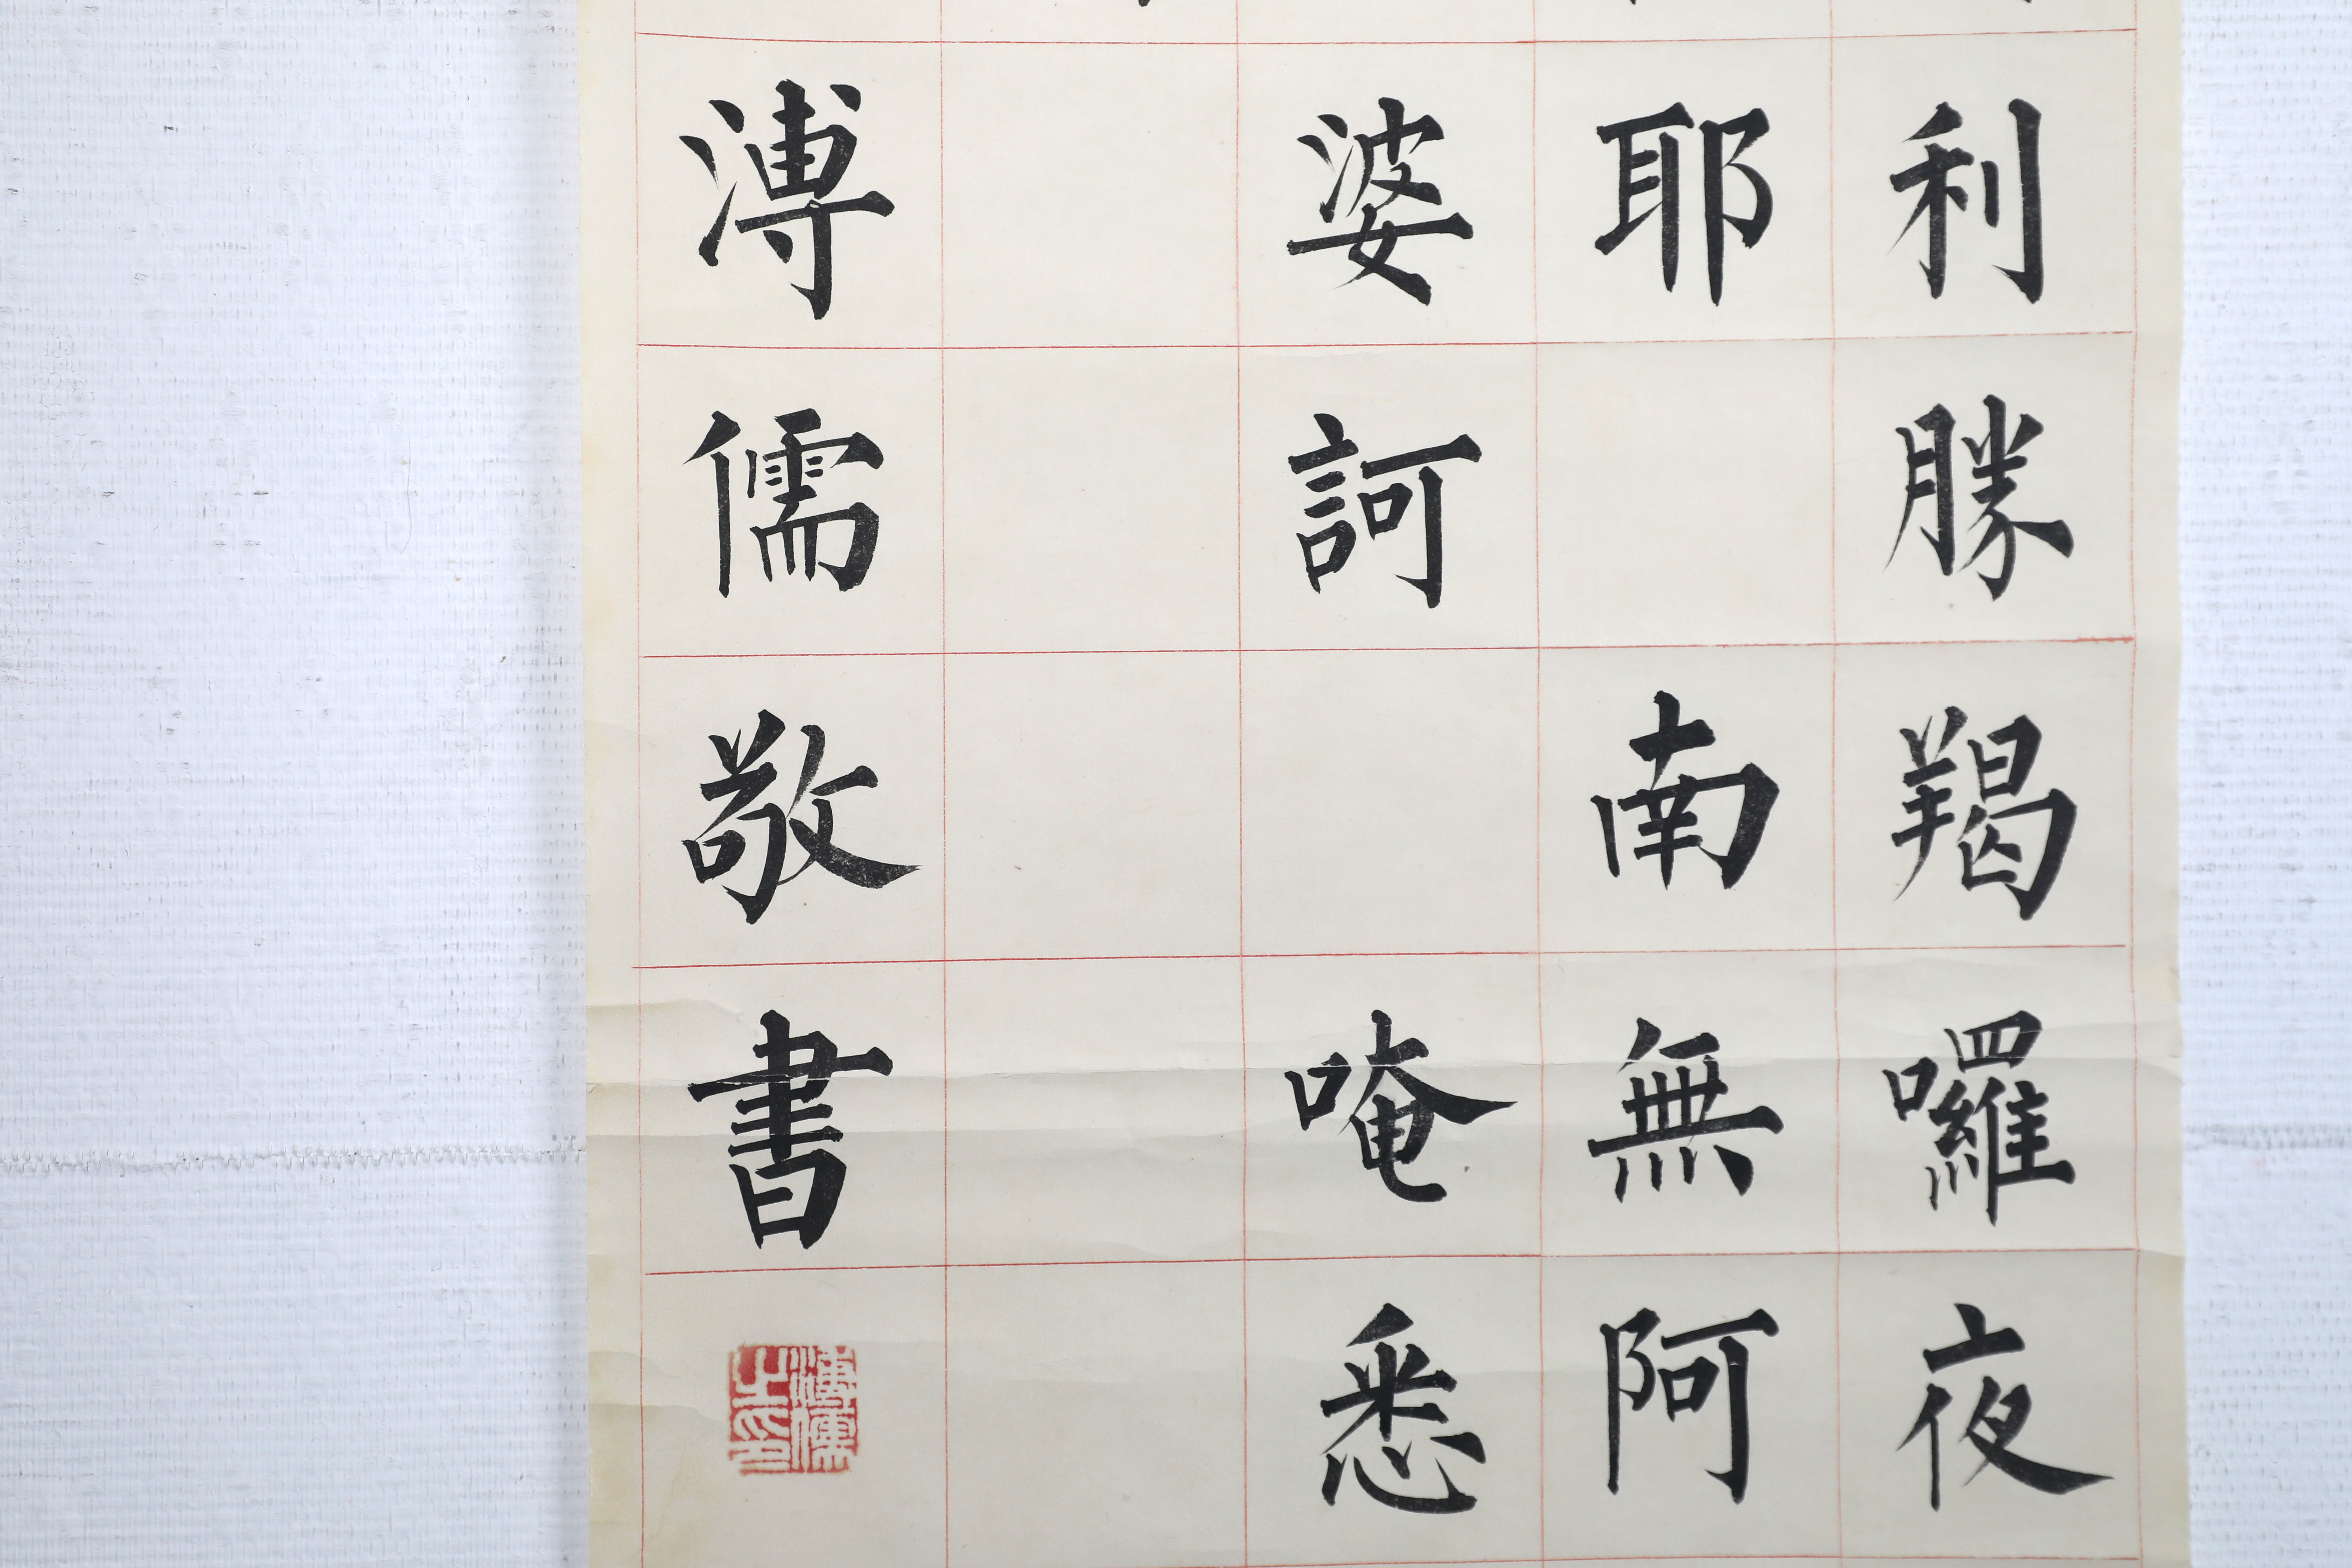 利勝羯囉夜
耶 南無阿
婆訶 唵悉
溥儒敬書
溥儒之印